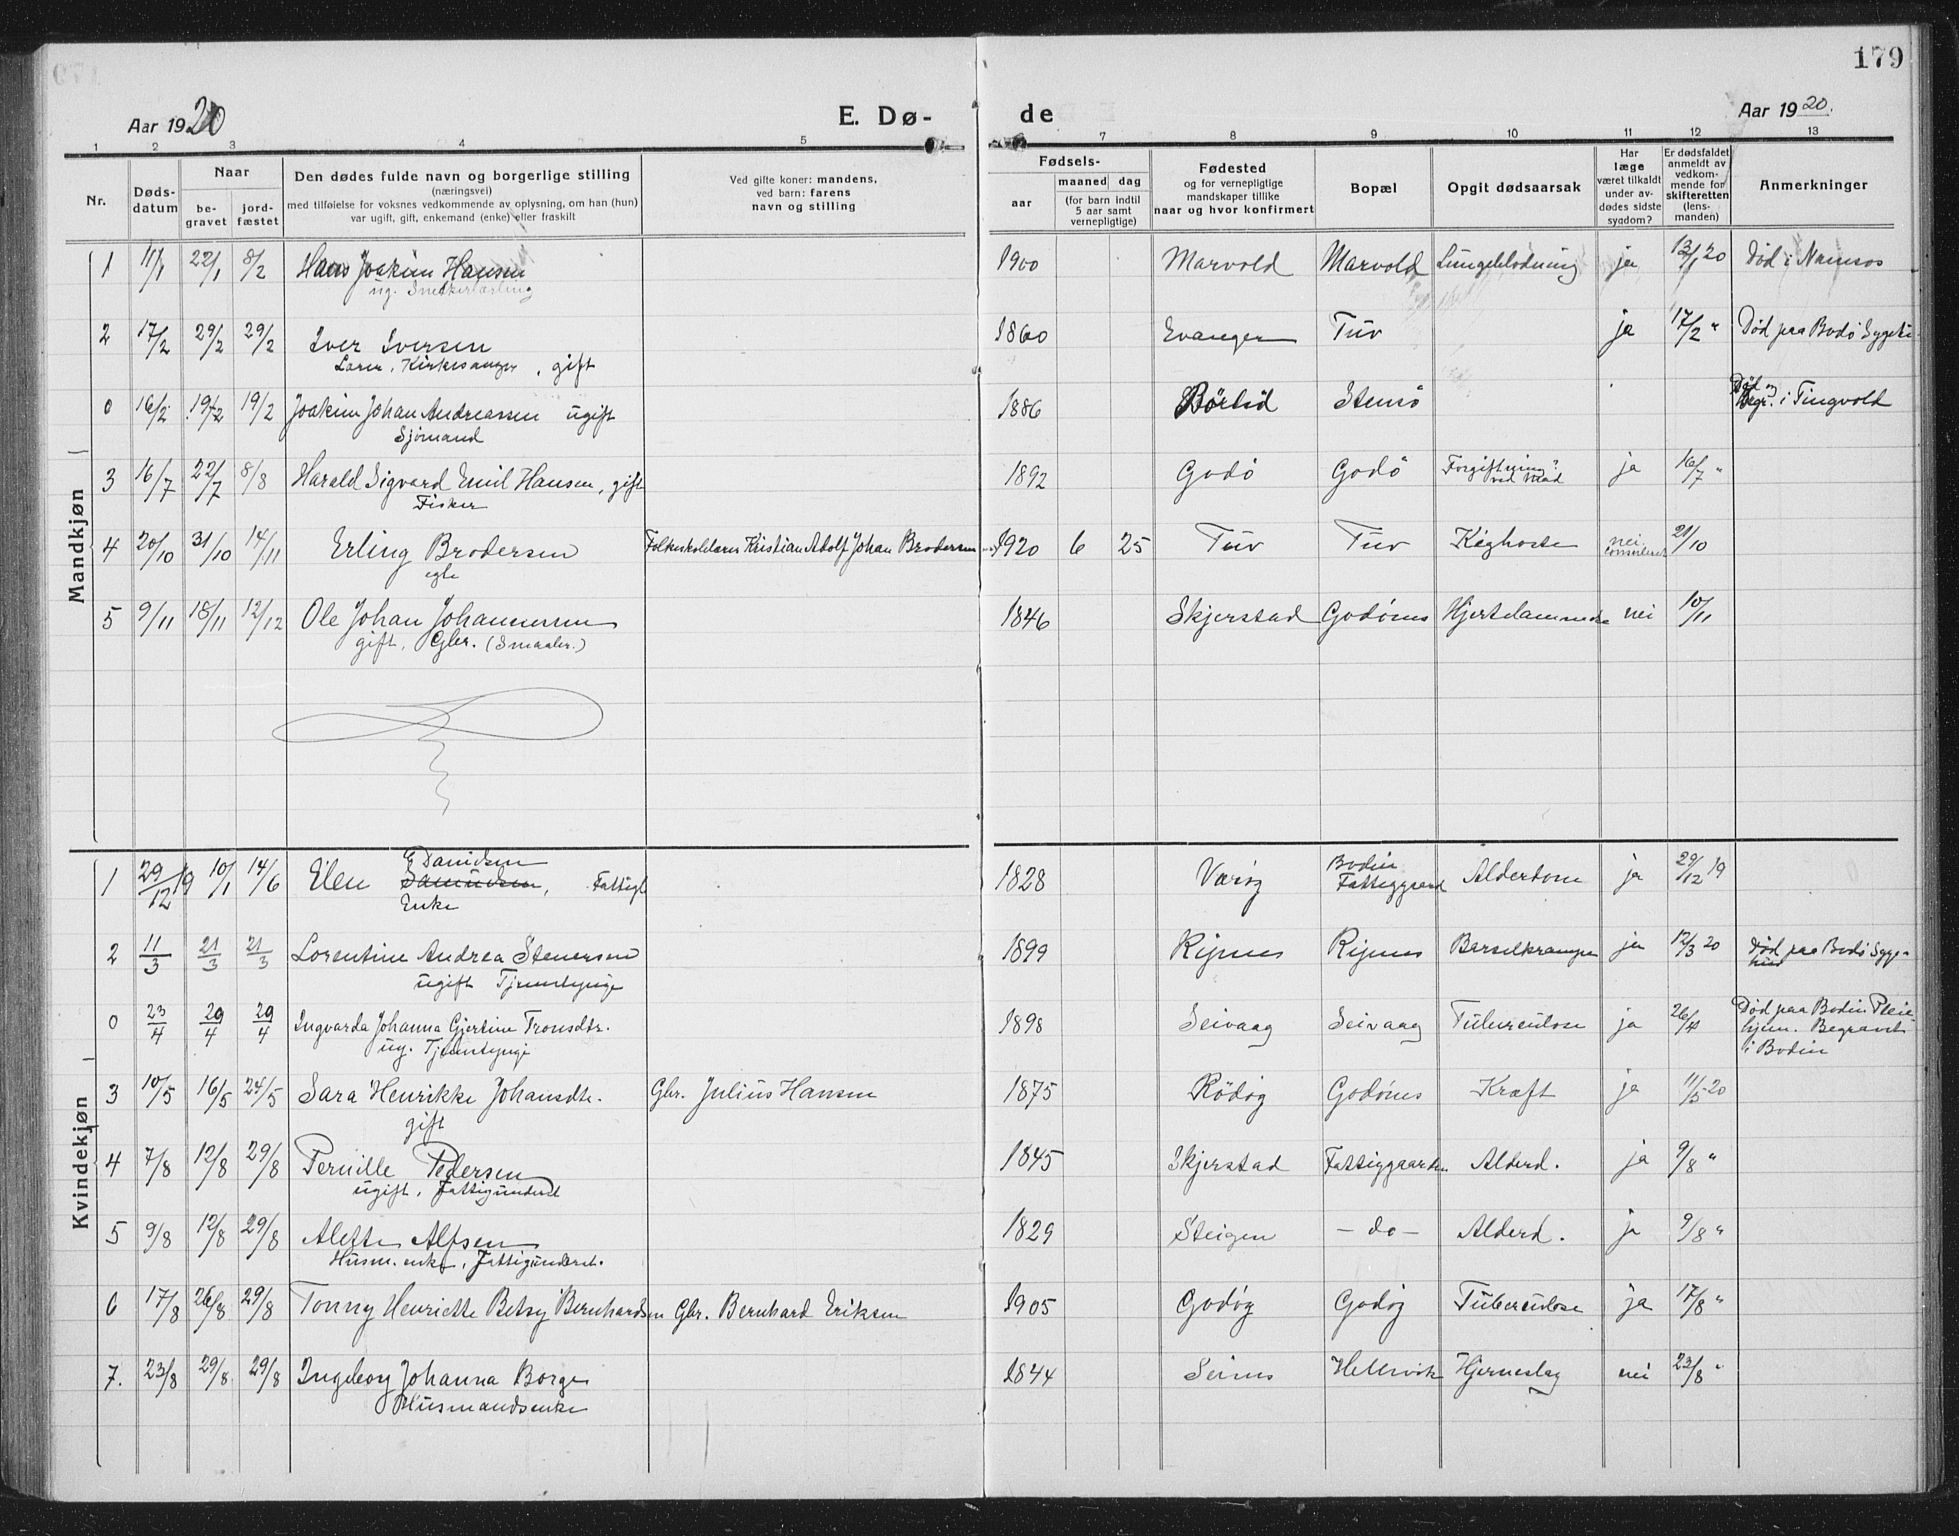 179
Aar 1920
E. Dø-
de
Aar 1920.
1 2 3 4 5
7 8 9 10 11 12 13
Nr.
Døds-
datum
Naar
be-
gravet
jord-
fæstet
Den dødes fulde navn og borgerlige stilling
(næringsvei)
med tilføielse for voksnes vedkommende av oplysning, om han (hun)
var ugift, gift, enkemand (enke) eller fraskilt
Ved gifte koner: mandens,
ved barn: farens
navn og stilling
Fødsels-
aar
maaned dag
(for barn indtil
5 aar samt
vernepligtige)
Fødested
og for vernepligtige
mandskaper tillike
naar og hvor konfirmert
Bopæl
Opgit dødsaarsak
Har
læge
været tilkaldt
under av-
dødes sidste
sygdom?
Er dødsfaldet
anmeldt av
vedkom-
mende for
skifteretten
(lens-
manden)
Anmerkninger
Mandkjøn
1 11/1 22/1 8/2 Hans Joakim Hansen 1900 Marvold Marvold Lungeblødning ja 13/1 20 Død i Namsos
ug. Snekkerlærling
2 17/2 29/2 29/2 Iver Iversen 1860 Evanger Tuv ja 17/2 " Død paa Bodø
Lærer, Kirkesanger, gift
0 16/2 19/2 19/2 Joakim Johan Andreassen ugift 1886 Stensø Død og
Begr. i Tingvold
Sjømand
3 16/7 22/7 8/8 Harald Sigvard Emil Hansen, gift 1892 Godø Godø Forgiftning? ja 16/7 "
ved Mad
Fisker
4 20/10 31/10 14/11 Erling Brodersen Folkeskolelærer Kristian Adolf Johan Brodersen 1920 6 25 Tuv Tuv Kighoste nei 21/10
egte
5 9/11 18/11 12/12 Ole Johan Johannessen 1846 Skjerstad Godønes Hjertelammelse nei 10/11
gift, Gbr. (Smaabr.)
Kvindekjøn
1 29/12 19 10/1 14/6 Elen Danielsen 1828 Værøy Bodin
Fattiggaard Alderdom ja 29/12 19
Enke, Fattigl
2 11/3 21/3 21/3 Lorentine Andrea Stenersen 1899 Rijnes Rijnes Barselkrampe ja 12/3 20 Død paa Bodø Syge-
hus
ugift Tjenestepige
0 23/4 29/4 29/4 Ingvarda Johanna Gjertine Tronsdtr. 1898 Seivaag Seivaag Tuberculose ja 26/4 Død paa Bodin Pleie-
hjem. Begravet
i Bodin
ug. Tjenestepige
3 10/5 16/5 24/5 Sara Henrikke Johansdtr. Gbr. Julius Hansen 1875 Rødøy Godønes Kræft ja 11/5 20
gift
4 7/8 12/8 29/8 Pernille Pedersen 1845 Skjerstad Fattiggaarden Alderd. ja 9/8 "
ugift, Fattigunderst
5 9/8 12/8 29/8 Alette Alfsen 1829 Steigen - do - Alderd. ja 9/8 "
Husm. enke, Fattigunderst.
6 17/8 26/8 29/8 Tonny Henriette Betsy Bernhardsen Gbr. Bernhard Eriksen 1905 Godøy Godøy Tuberculose ja 17/8 "
7. 23/8 29/8 29/8 Ingeborg Johanna Borge 1844 Seines Hellevik Hjerneslag nei 23/8 "
Husmandsenke